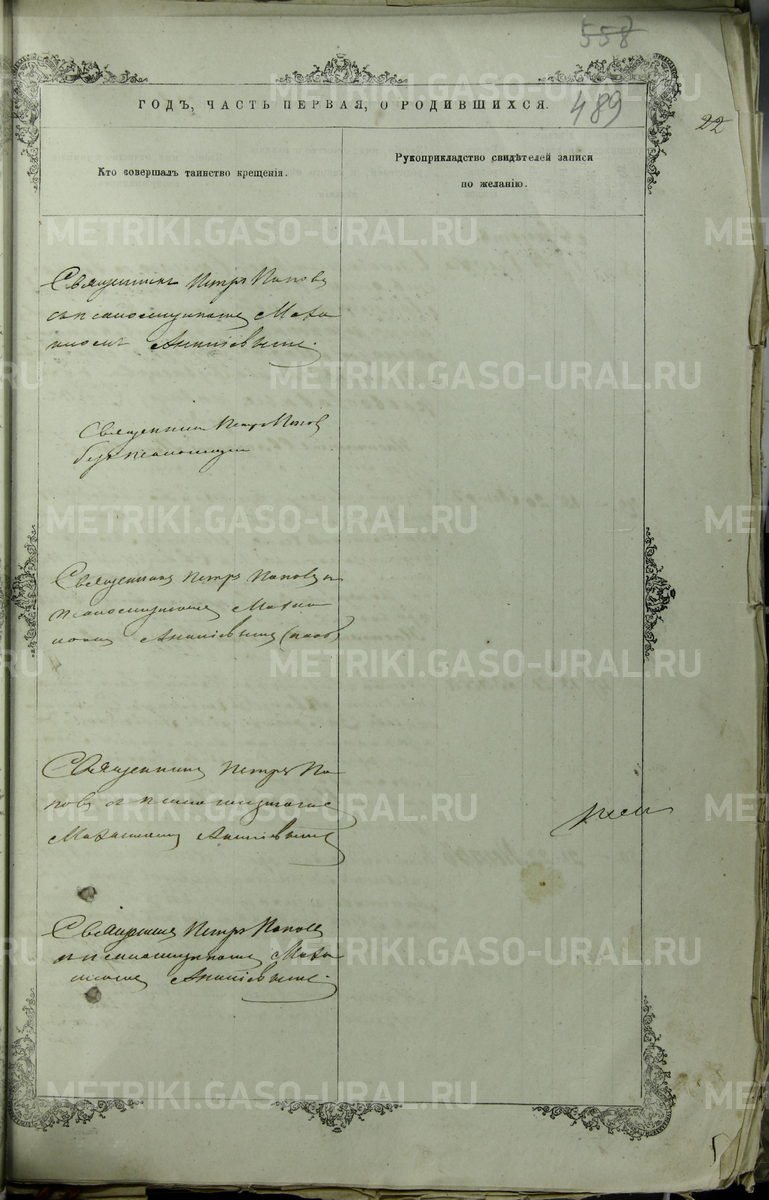 558
ГОДЪ, ЧАСТЬ ПЕРВАЯ, О РОДИВШИХСЯ.
489
22
Кто совершалъ таинство крещенія.
Рукоприкладство свидѣтелей записи
по желанію.
Священникъ Петръ Поповъ
съ псаломщикомъ
Ананіевымъ.
Священникъ Петръ Поповъ
безъ псаломщика
Священникъ Петръ Поповъ съ
псаломщикомъ
Ананіевымъ
Священникъ Петръ По
повъ съ псаломщикомъ
Ананіевымъ
Священникъ Петръ Поповъ
съ псаломщикомъ
Ананіевымъ.
METRIKI.GASO-URAL.RU